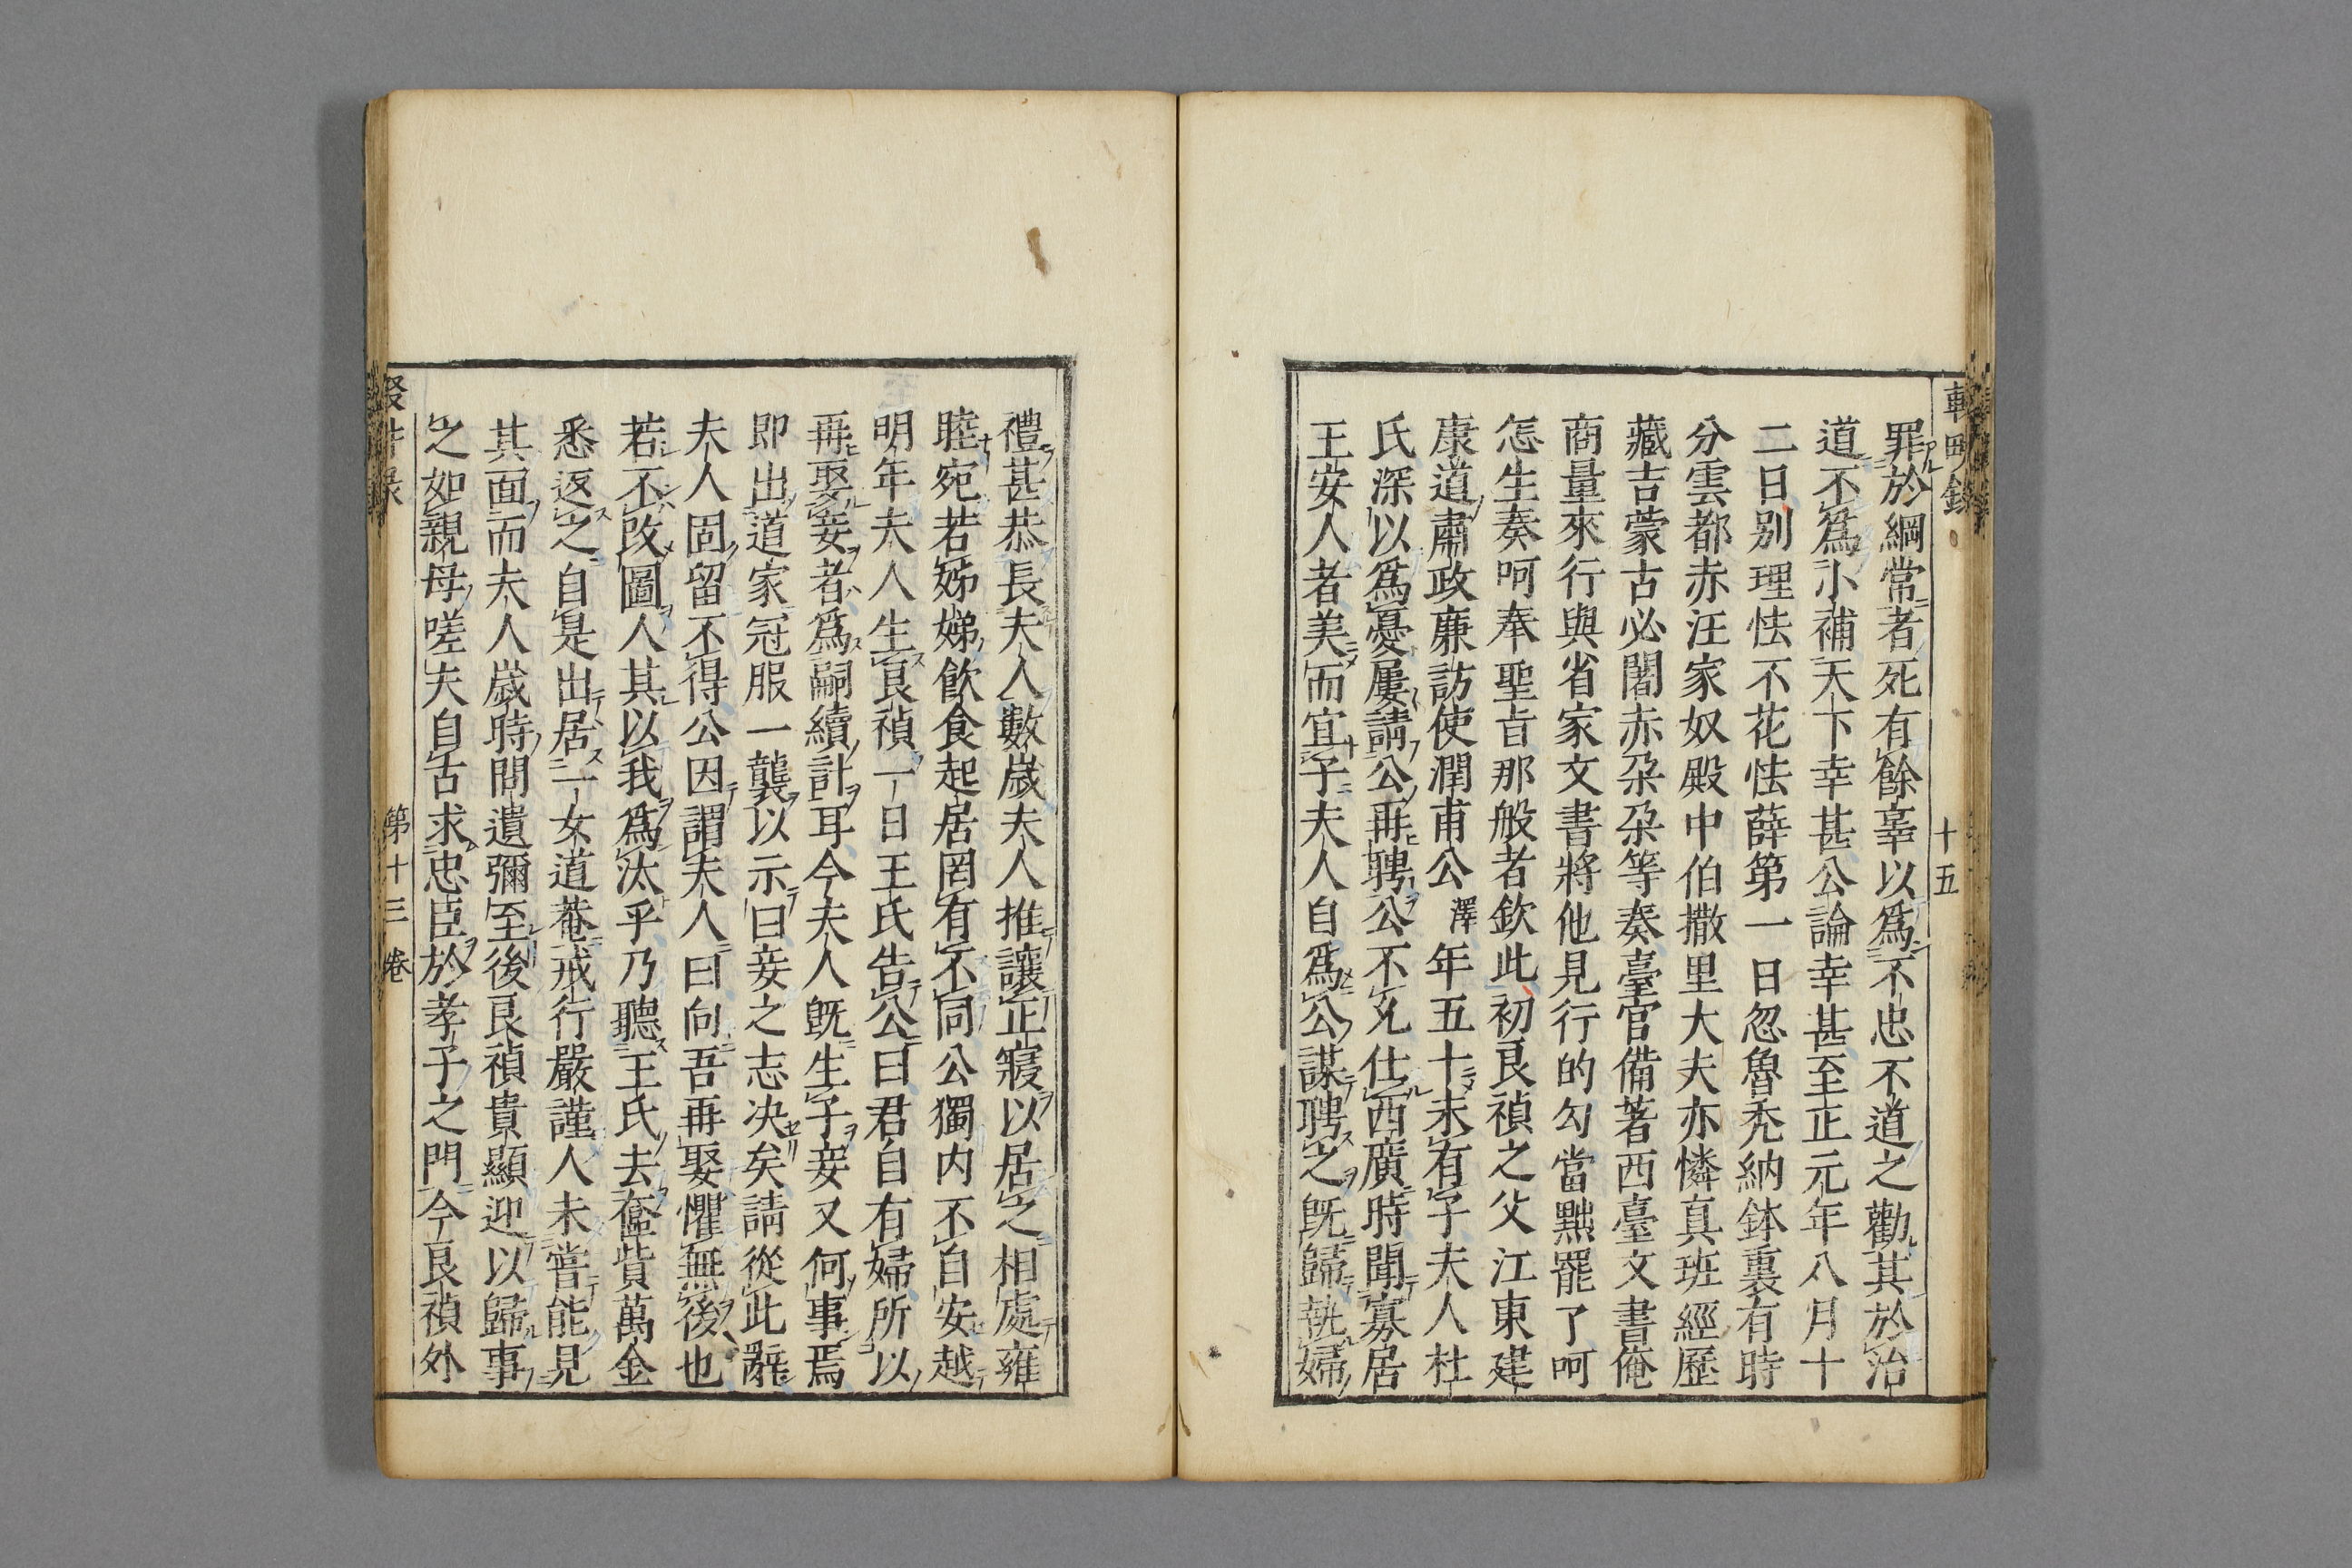 罪於綱常者死有餘辜以爲不忠不道之勸其於治
道不爲小補天下幸甚公論幸甚至正元年八月十
二日别理怯不花怯薛第一日忽魯禿納鉢裏有時
分雲都赤汪家奴殿中伯撒里大夫亦憐真班經歷
藏吉蒙古必闍赤朶朶等奏臺官備著西臺文書俺
商量來行與省家文書將他見行的勾當黜罷了呵
怎生奏呵奉聖旨那般者欽此初良禎之父江東建
康道肅政亷訪使潤甫公澤年五十未有子夫人杜
氏深以爲憂屢請公再聘公不允仕西廣時聞寡居
王安人者美而宜子夫人自爲公謀聘之既歸執婦
十五
禮甚恭長夫人數歲夫人推讓正寢以居之相處雍
睦宛若姊娣飲食起居罔有不同公獨内不自安越
明年夫人生良禎一日王氏告公曰君自有婦所以
再娶妾者爲嗣續計耳今夫人既生子妾又何事焉
即出道家冠服一襲以示曰妾之志决矣請從此辭
夫人固留不得公因謂夫人曰向吾再娶懼無後也
若不改圖人其以我爲汰乎乃聽王氏去奩貲萬金
悉返之自是出居一女道菴戒行嚴謹人未嘗能見
其面而夫人歲時問遺彌至後良禎貴顯迎以歸事
之如親母嗟夫自古求忠臣於孝子之門今良禎外
第十三卷